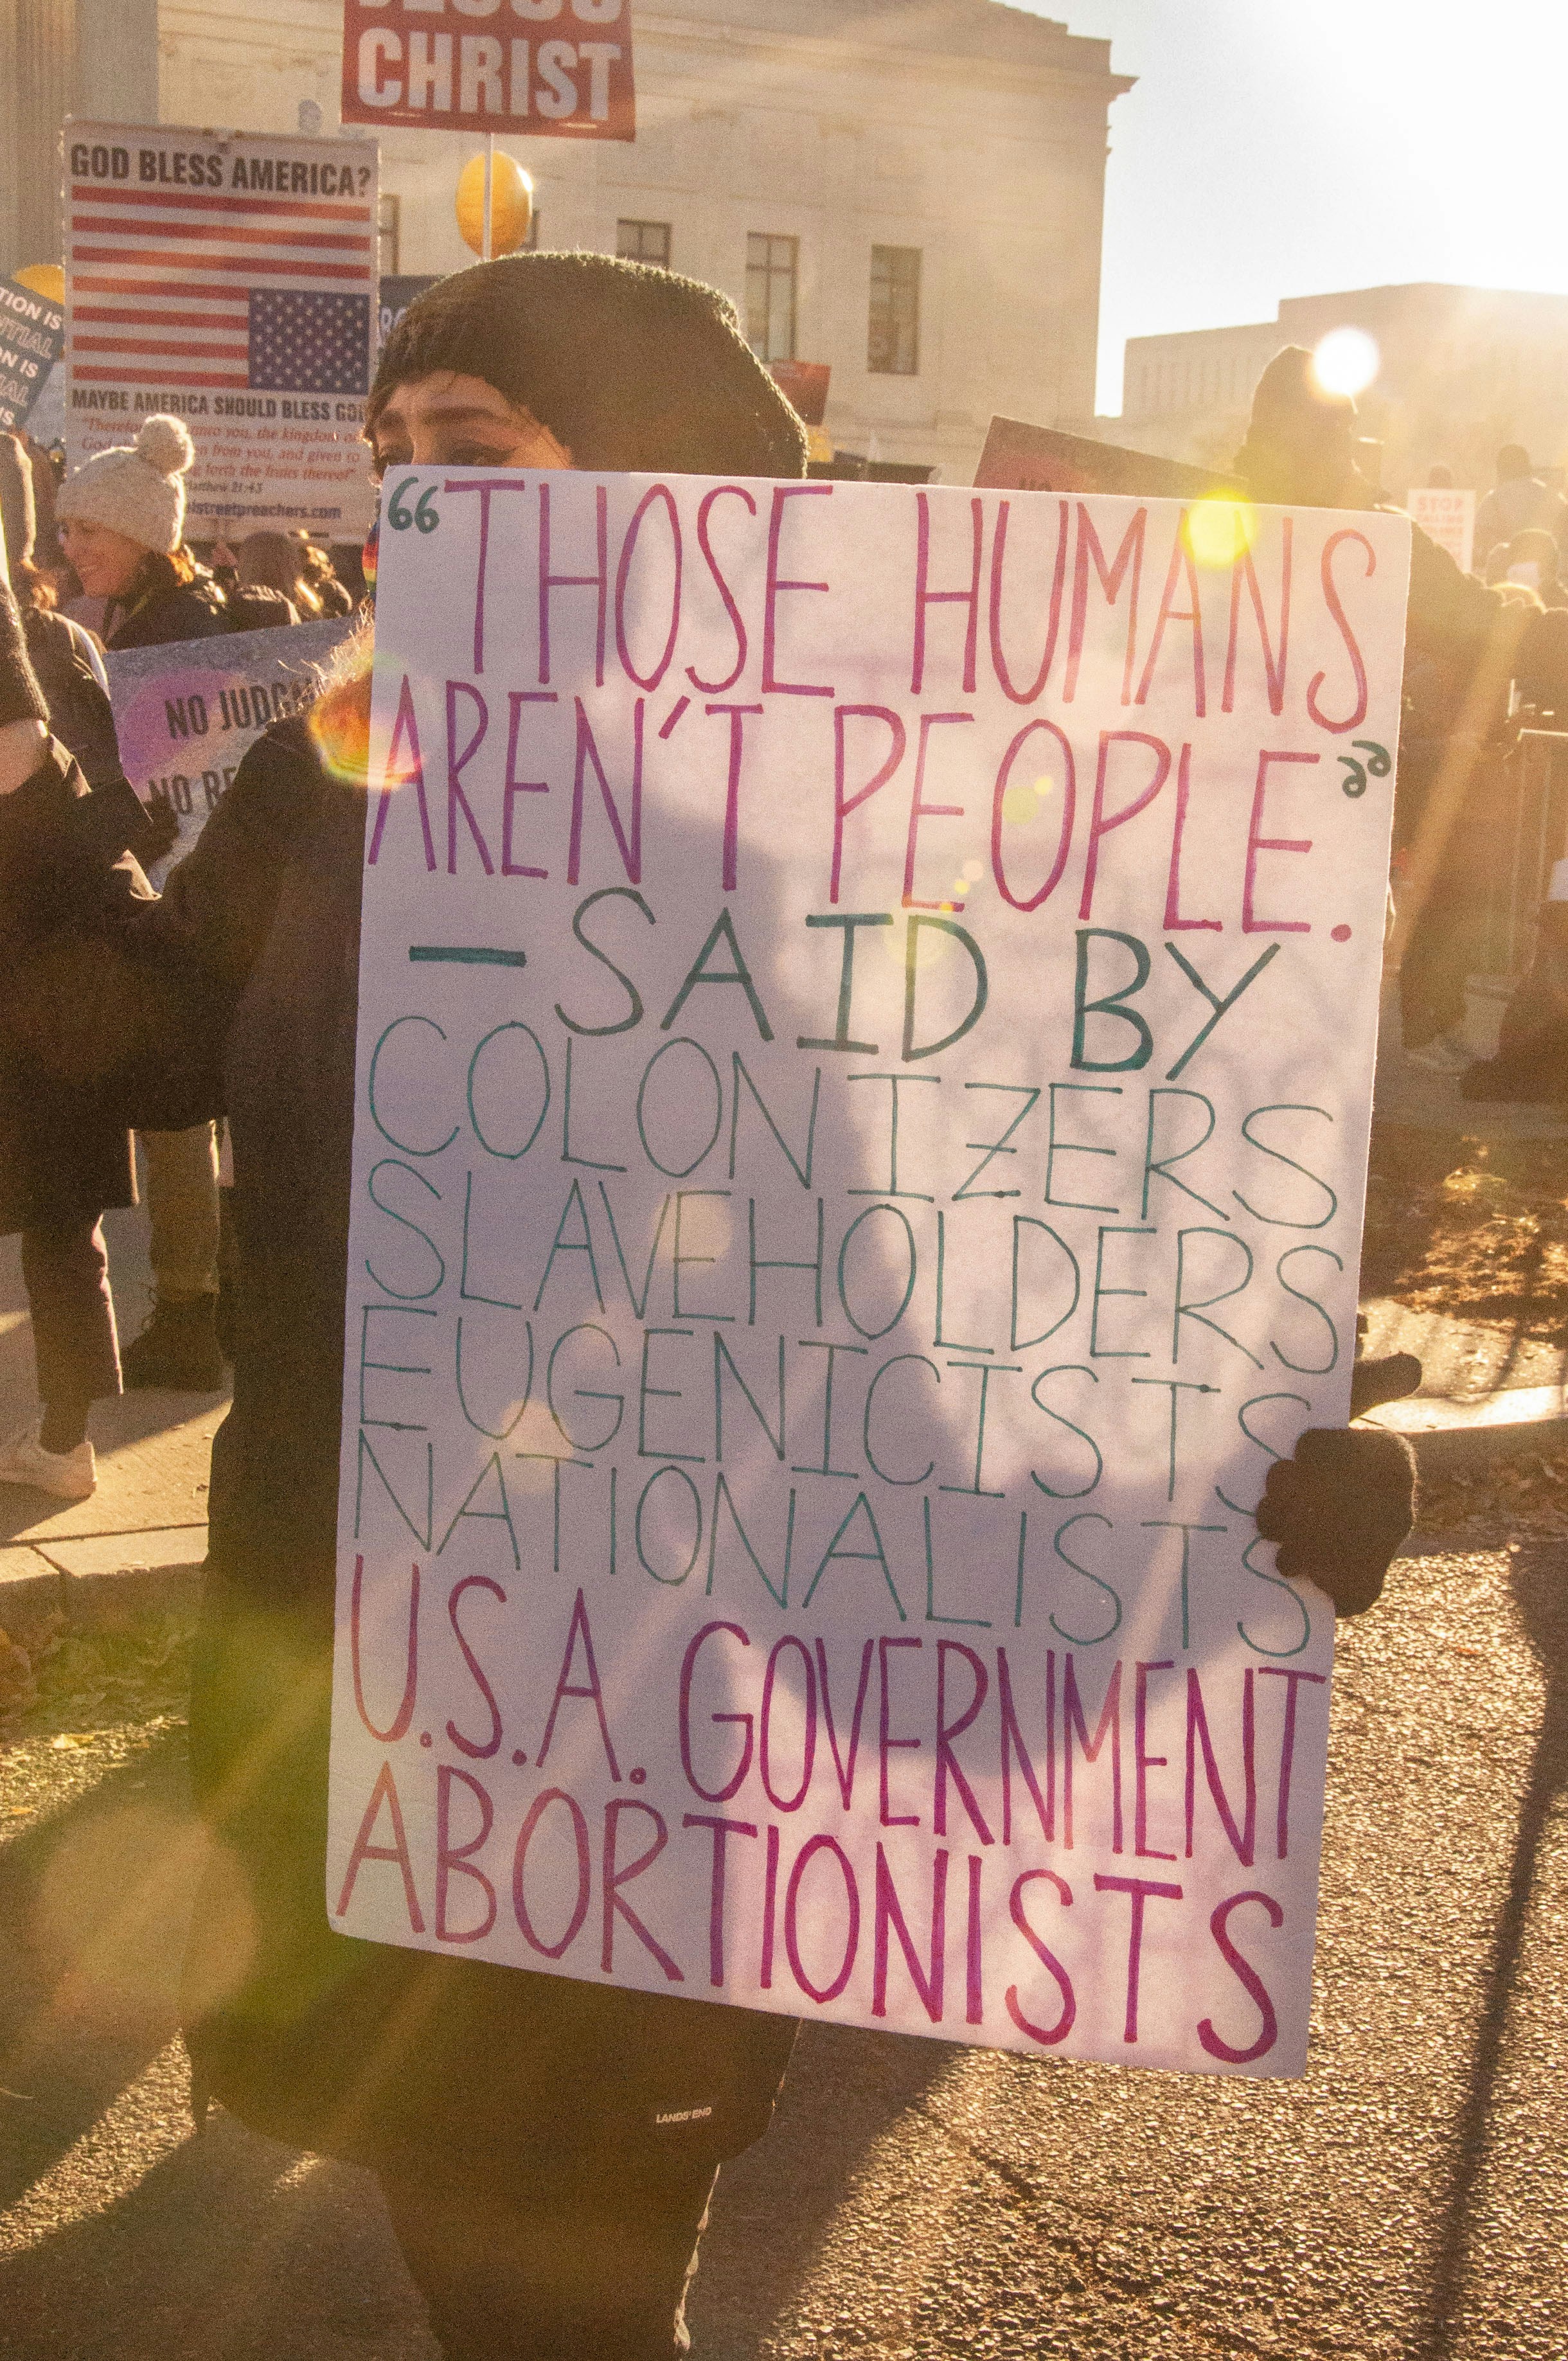 CHRIST
GOD BLESS AMERICA?
MAYBE AMERICA SHOULD BLESS GOD
unto you, the kingdom of
God from you, and given to
forth the fruits thereof"
Matthew 21:43
TION IS
ON IS
IS
NO JUDG
NO RE
STOP
“THOSE HUMANS
AREN'T PEOPLE.”
— SAID BY
COLONIZERS
SLAVEHOLDERS
EUGENICISTS
NATIONALISTS
U.S.A. GOVERNMENT
ABORTIONISTS
LANDS' END